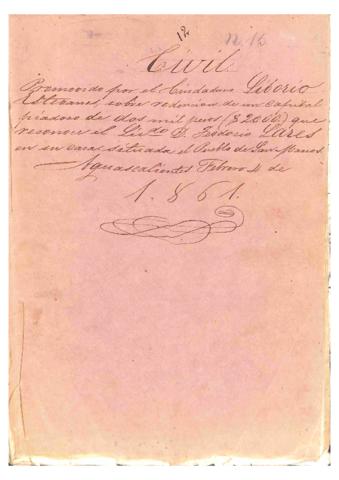 12
n. 16
Civil.
Promovido por el Ciudadano Liborio
Estevanes, sobre redencion de un Capital
piadoso de dos mil pesos ($2000) que
reconoce el Lic.do D. Teodocio Lares
en su casa situada el Pueblo de San Marcos.
Aguascalientes Febrero 4 de
1.861.